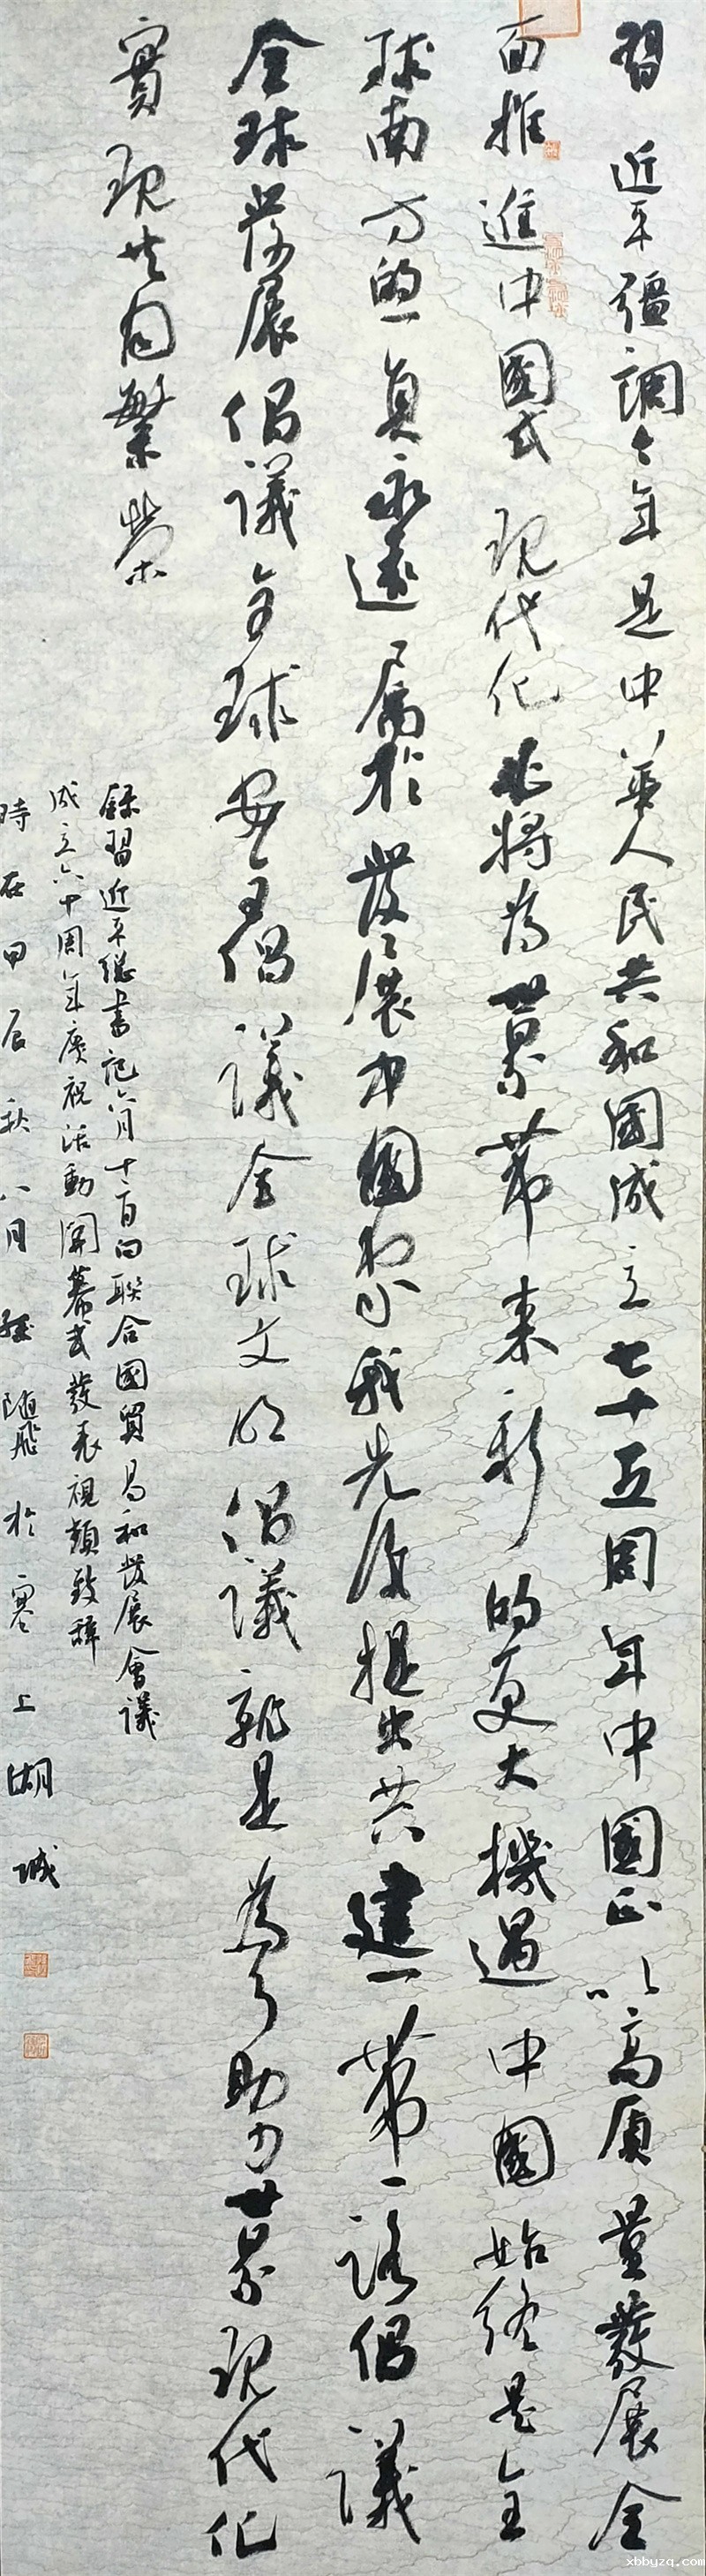 習近平强調今年是中華人民共和國成立七十五周年中國正以高质量發展全
面推進中國式現代化必將为世界帶来新的更大機遇中國始终是全
球南方的一員永遠属於發展中國家我先後提出共建一带一路倡議
全球發展倡議全球安全倡議全球文明倡議就是为了助力世界現代化
實現共同繁榮
録習近平總書記六月十二日向聯合國貿易和發展會議
成立六十周年慶祝活動開幕式發表視頻致辞
時在甲辰秋八月 隨飛於塞上湖城
xbbyzq.com